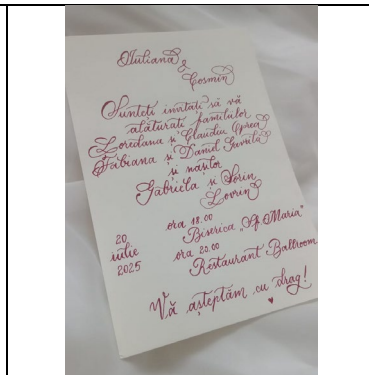 Iuliana
&
Cosmin
Sunteți invitați să vă
alăturați familiilor
Loredana și Claudiu Oprea
Fabiana și David Gavrilă
și nașilor
Gabriela și Sorin
Lovrin
20
iulie
2025
ora 18.00
Biserica „Sf. Maria"
ora 20.00
Restaurant Ballroom
Vă așteptăm cu drag!